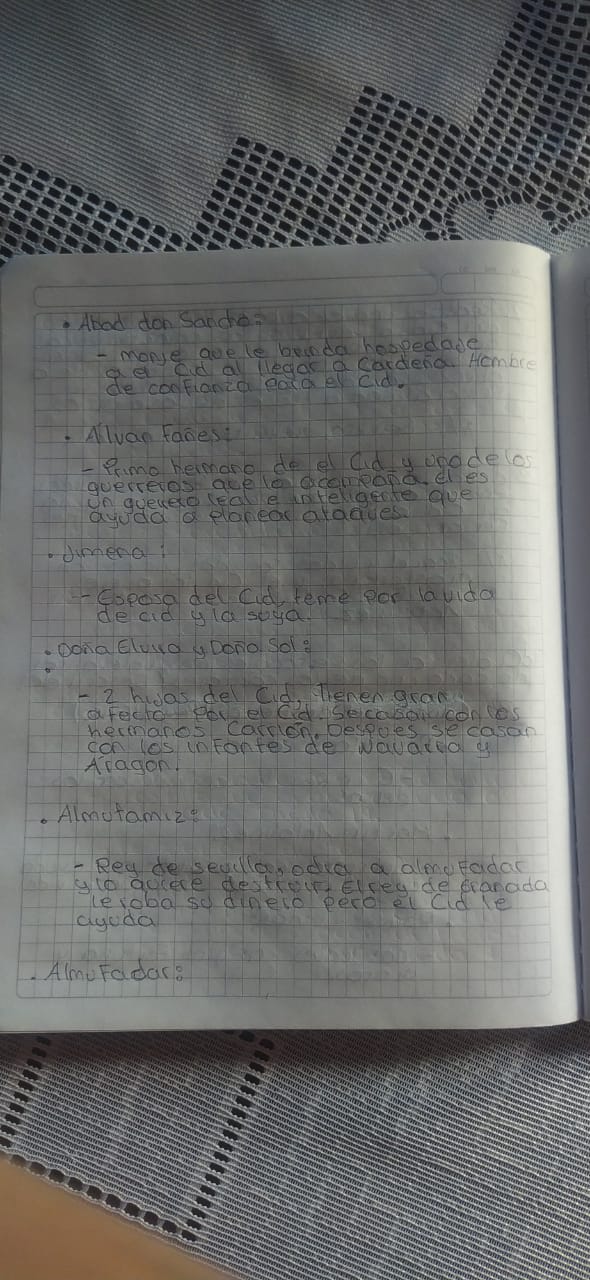 • Abad don Sancho:
- monje que le brinda hospedaje
a el Cid al llegar a Cardeña. Hombre
de confianza para el Cid.
• Alvar Fañes:
- Primo hermano de el Cid y uno de los
guerreros que lo acompaña. él es
un guerrero leal e inteligente que
ayuda a planear ataques.
• Jimena:
- Esposa del Cid, teme por la vida
de cid y la suya.
• Doña Elvira y Doña Sol:
•
- 2 hijas del Cid, Tienen gran
afecto por el Cid. Se casan con los
hermanos Carrión. Después se casan
con los infantes de Navarra y
Aragon.
• Almutamiz:
- Rey de sevilla, odia a almufadar
y lo quiere destruir. El rey de Granada
le roba su dinero pero el Cid le
ayuda
• Almufadar: